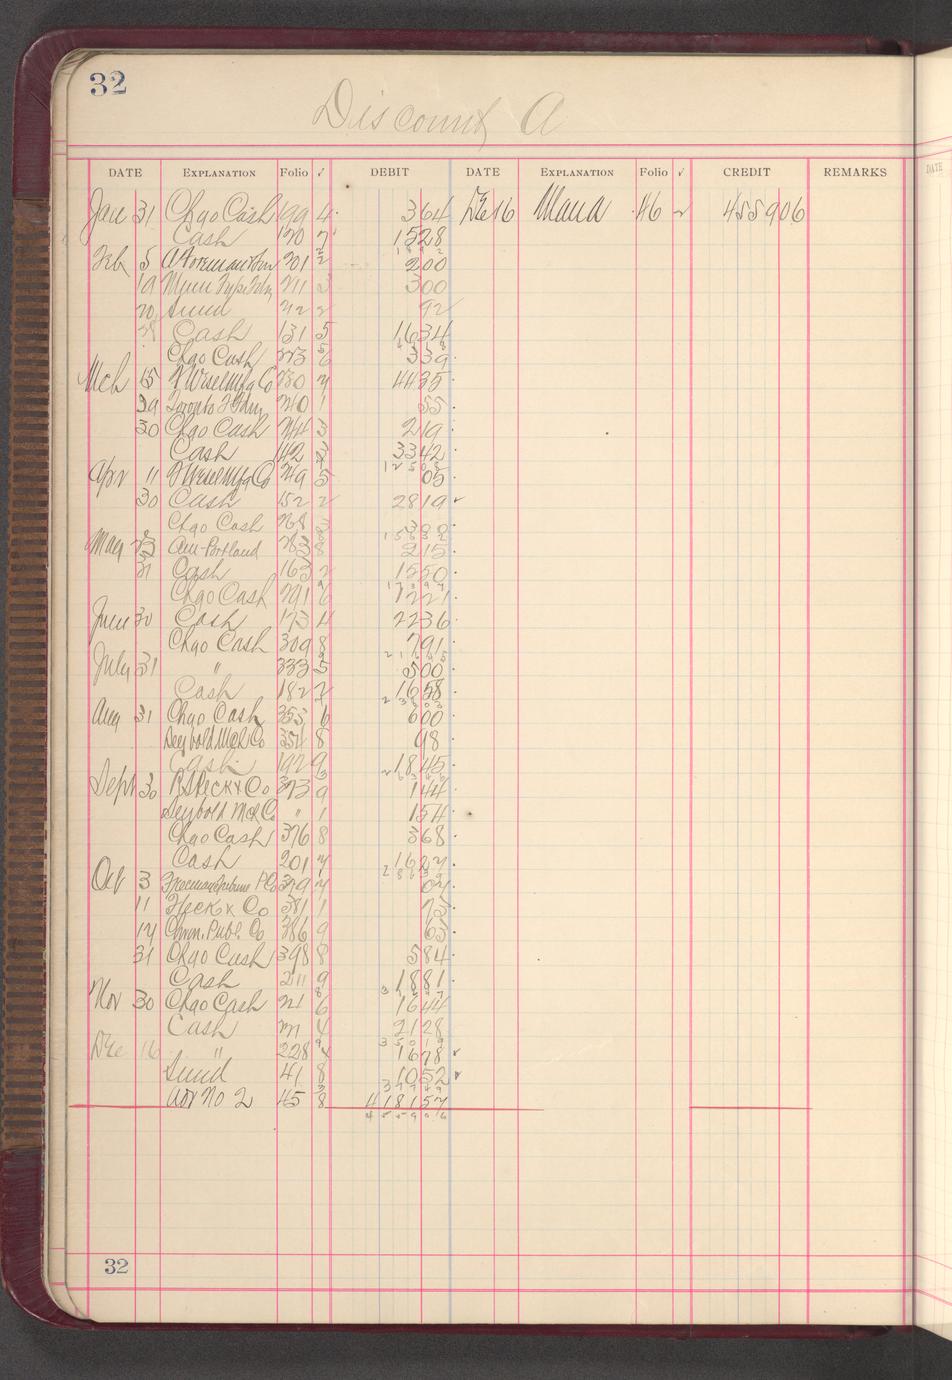 32
Discount A
DATE EXPLANATION Folio √ DEBIT DATE EXPLANATION Folio √ CREDIT REMARKS
DATE
Jan 31 Chgo Cash 199 4 364 Dec 16 Mana 46 2 455906
Cash 120 7 1528
Feb 5 201 2 200
19 211 3 300
20 Sund 212 2 92
28 Cash 131 5 1634
Chgo Cash 223 6 339
Mch 15 F Wesel Mfg Co 230 7 4435
29 Toronto 240 1 55
30 Chgo Cash 244 3 219
Cash 142 3 3342
Apr 11 F Wesel Mfg Co 249 5 05
30 Cash 152 2 2819
Chgo Cash 268
May 23 Am-Portland 283 8 215
31 Cash 163 2 1550
Chgo Cash 291 6 1221
June 30 Cash 173 4 2236
Chgo Cash 309 8 791
July 31 " 333 5 500
Cash 182 2 1658
Aug 31 Chgo Cash 355 6 600
Seybold Mch Co 356 8 98
Cash 192 9 1845
Sept 30 Co 373 9 144
Seybold Mch Co " 1 154
Chgo Cash 376 8 368
Cash 201 7 1627
28639
Oct 3 379 7 07
11 Co 381 1 75
14 Publ. Co 386 9 63
31 Chgo Cash 398 8 584
Cash 211 9 1881
Nov 30 Chgo Cash 21 6 1644
Cash 221 4 2128
35019
Dec 16 " 228 4 1678
Sund 41 8 1052
37749
Adv No 2 45 8 418157
455906
32